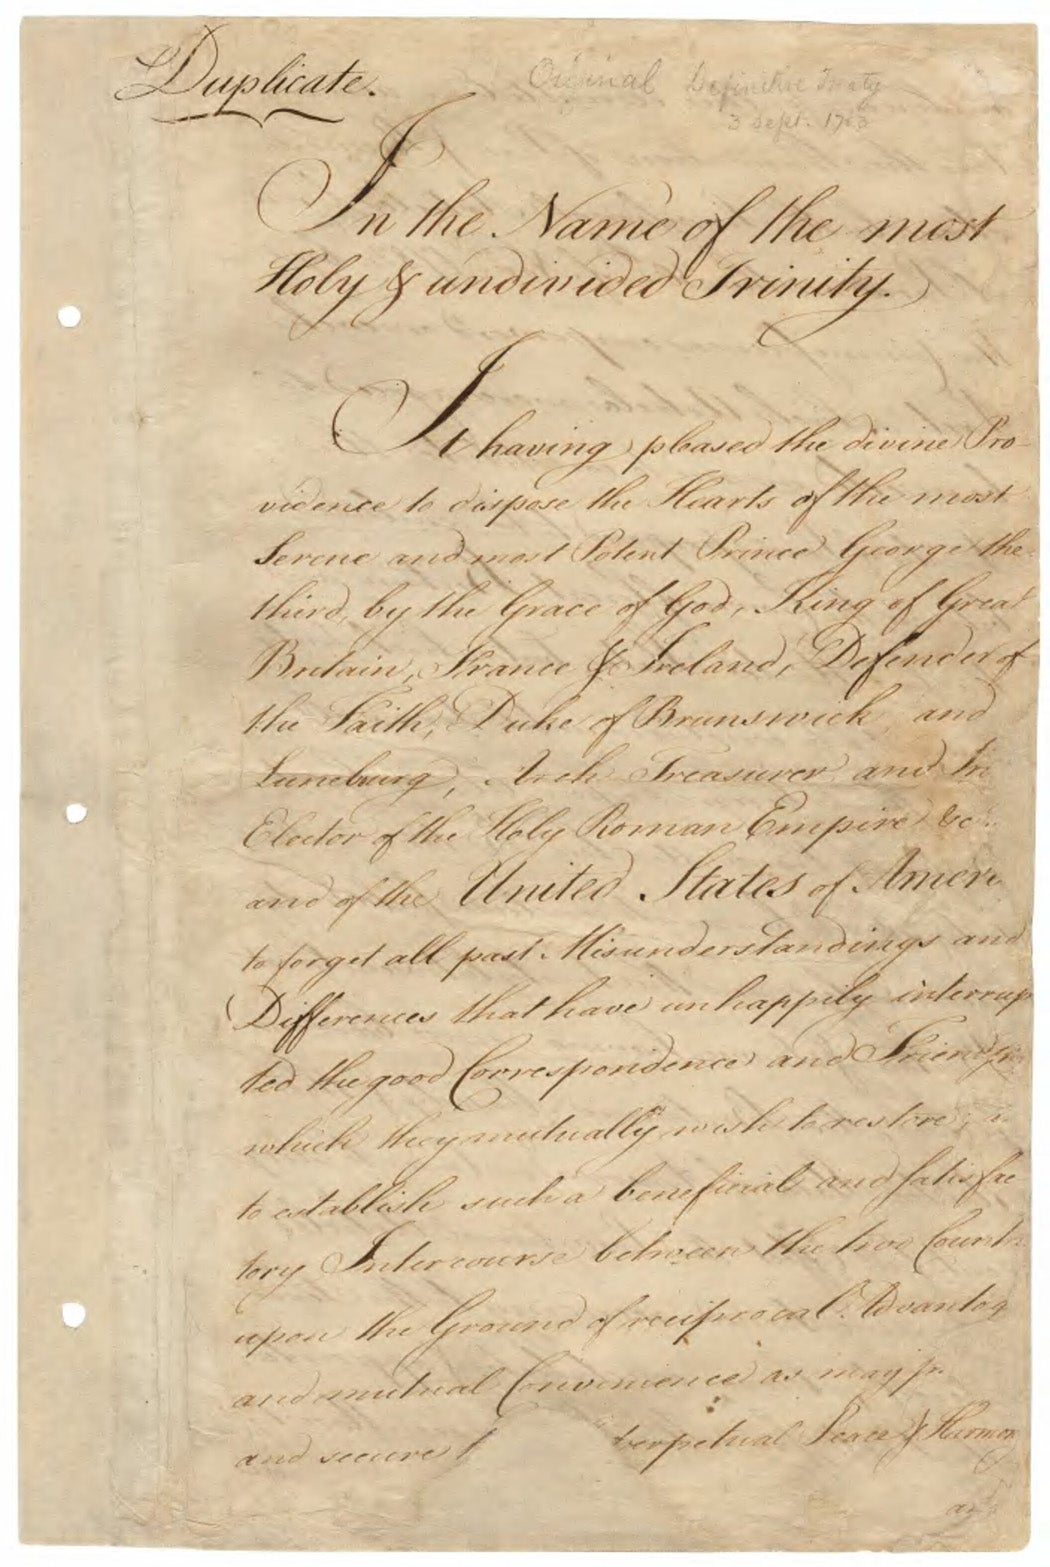 Duplicate.
Original Definitive Treaty
3 Sept. 1783
In the Name of the most
Holy & undivided Trinity.
It having pleased the divine Pro-
vidence to dispose the Hearts of the most
Serene and most Potent Prince George the
third, by the Grace of God, King of Great
Britain, France & Ireland, Defender of
the Faith, Duke of Brunswick and
Luneburg, Arch Treasurer and Pri
Elector of the Holy Roman Empire &c.
and of the United States of Ameri
to forget all past Misunderstandings and
Differences that have unhappily interrup
ted the good Correspondence and Friendship
which they mutually wish to restore;
to establish such a beneficial and satisfac
tory Intercourse between the two Countr
upon the Ground of reciprocal Advantag
and mutual Convenience as may pr
and secure t perpetual Peace & Harmon
and